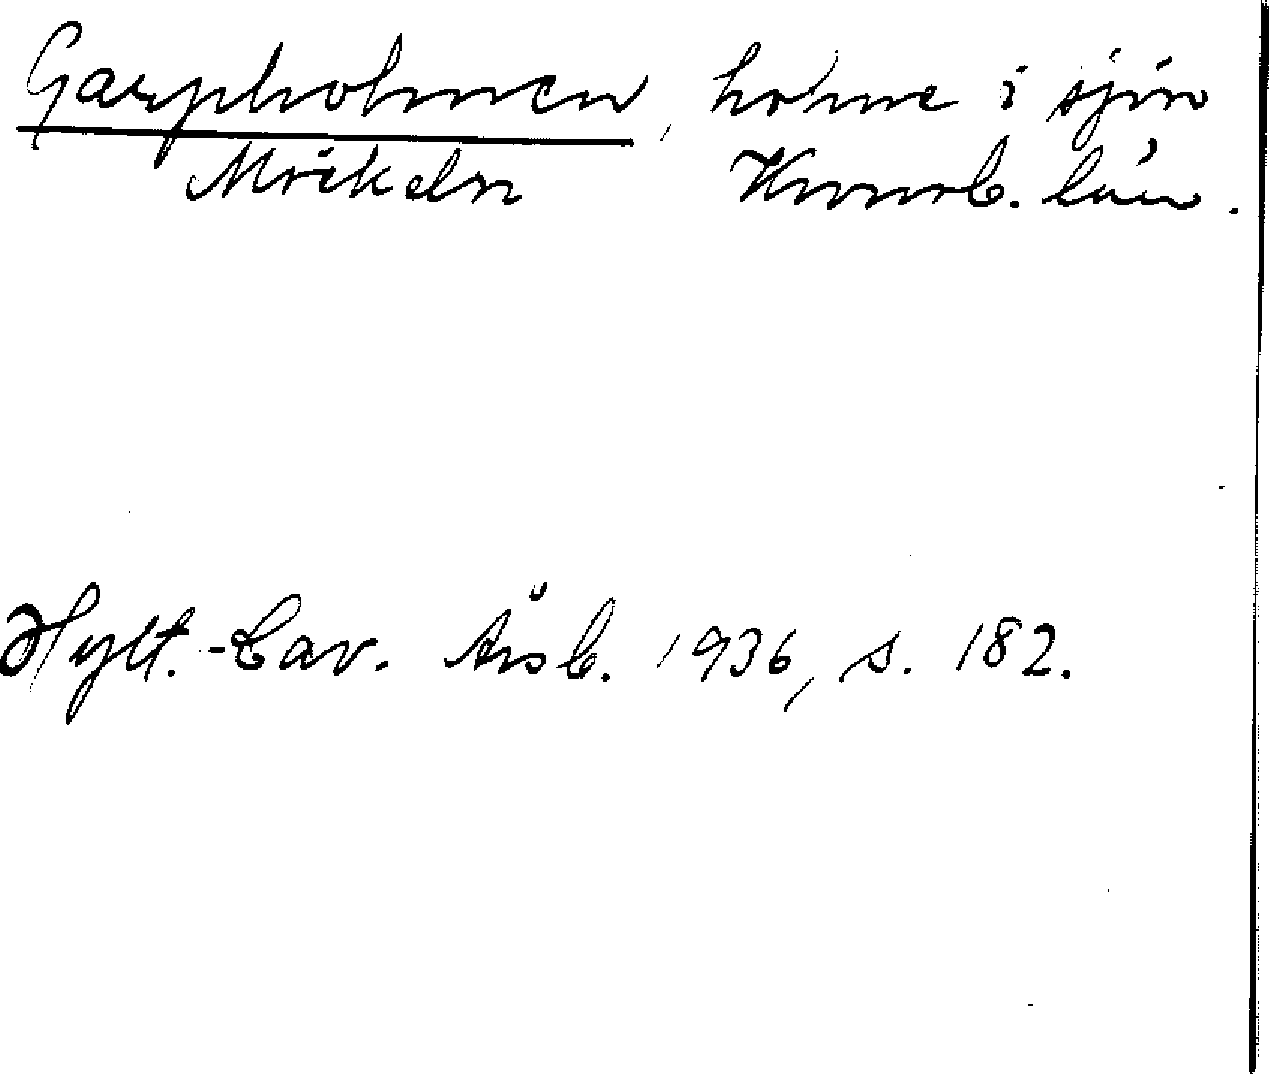 Garpholmen, holme i sjön
Möckeln Kronob. län.
Hylt.-Cav. Årsb. 1936, s. 182.